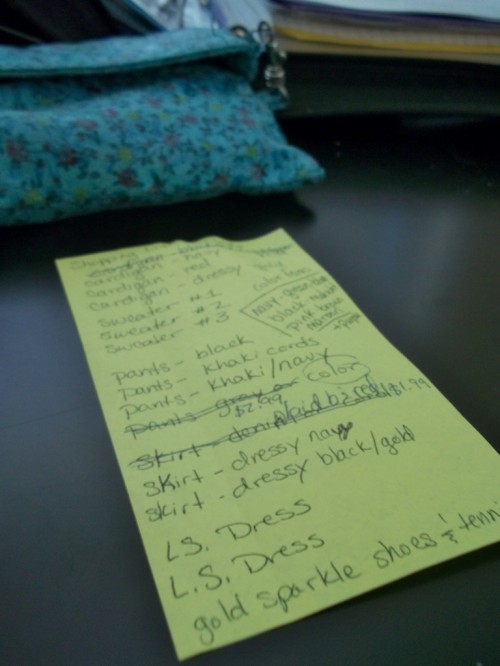 Shopping
cardigan - navy
cardigan - red
cardigan - dressy
sweater #1
sweater #2
sweater #3
navy
black
pink
pants - black
pants - khaki cords
pants - khaki/navy
pants - gray or color
$2.99
skirt - denim/plaid $1.99
skirt - dressy navy
skirt - dressy black/gold
L.S. Dress
L.S. Dress
gold sparkle shoes & tenni